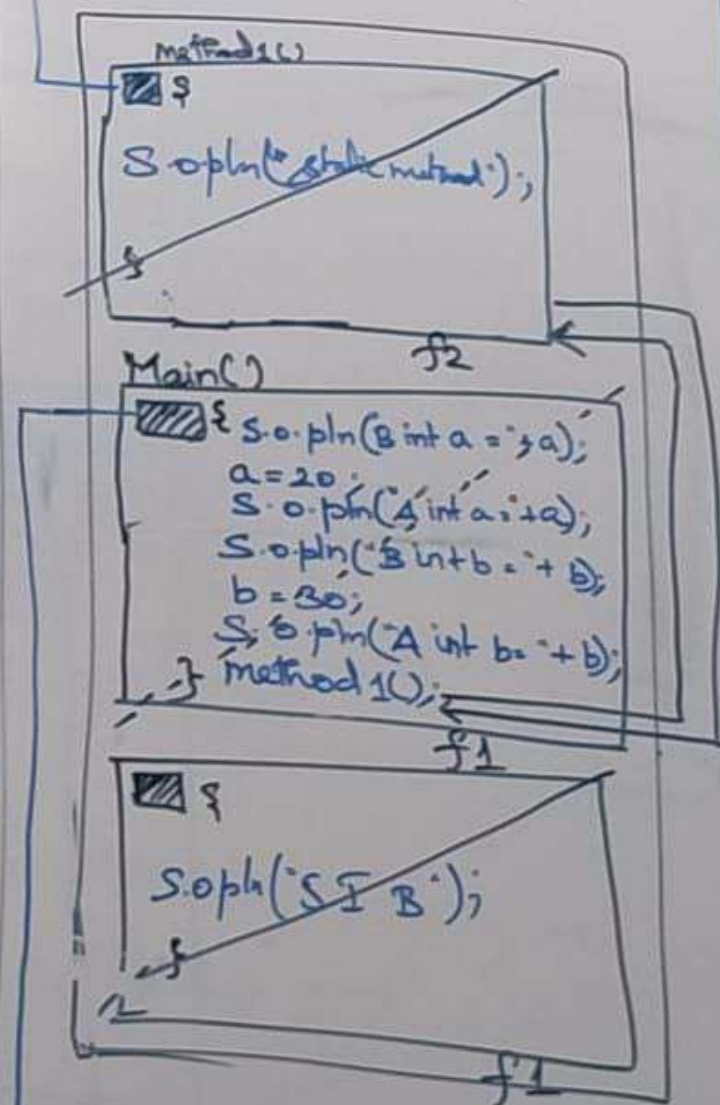 method1()
{
S.opln("static method");
}
f2
Main()
{ S.o.pln(B int a = "+a);
a=20;
S.o.pln("A int a="+a);
S.o.pln("B int b = "+ b);
b = 30;
S.o.pln("A int b= "+ b);
} method1();
f1
{
S.opln("S I B");
}
f1